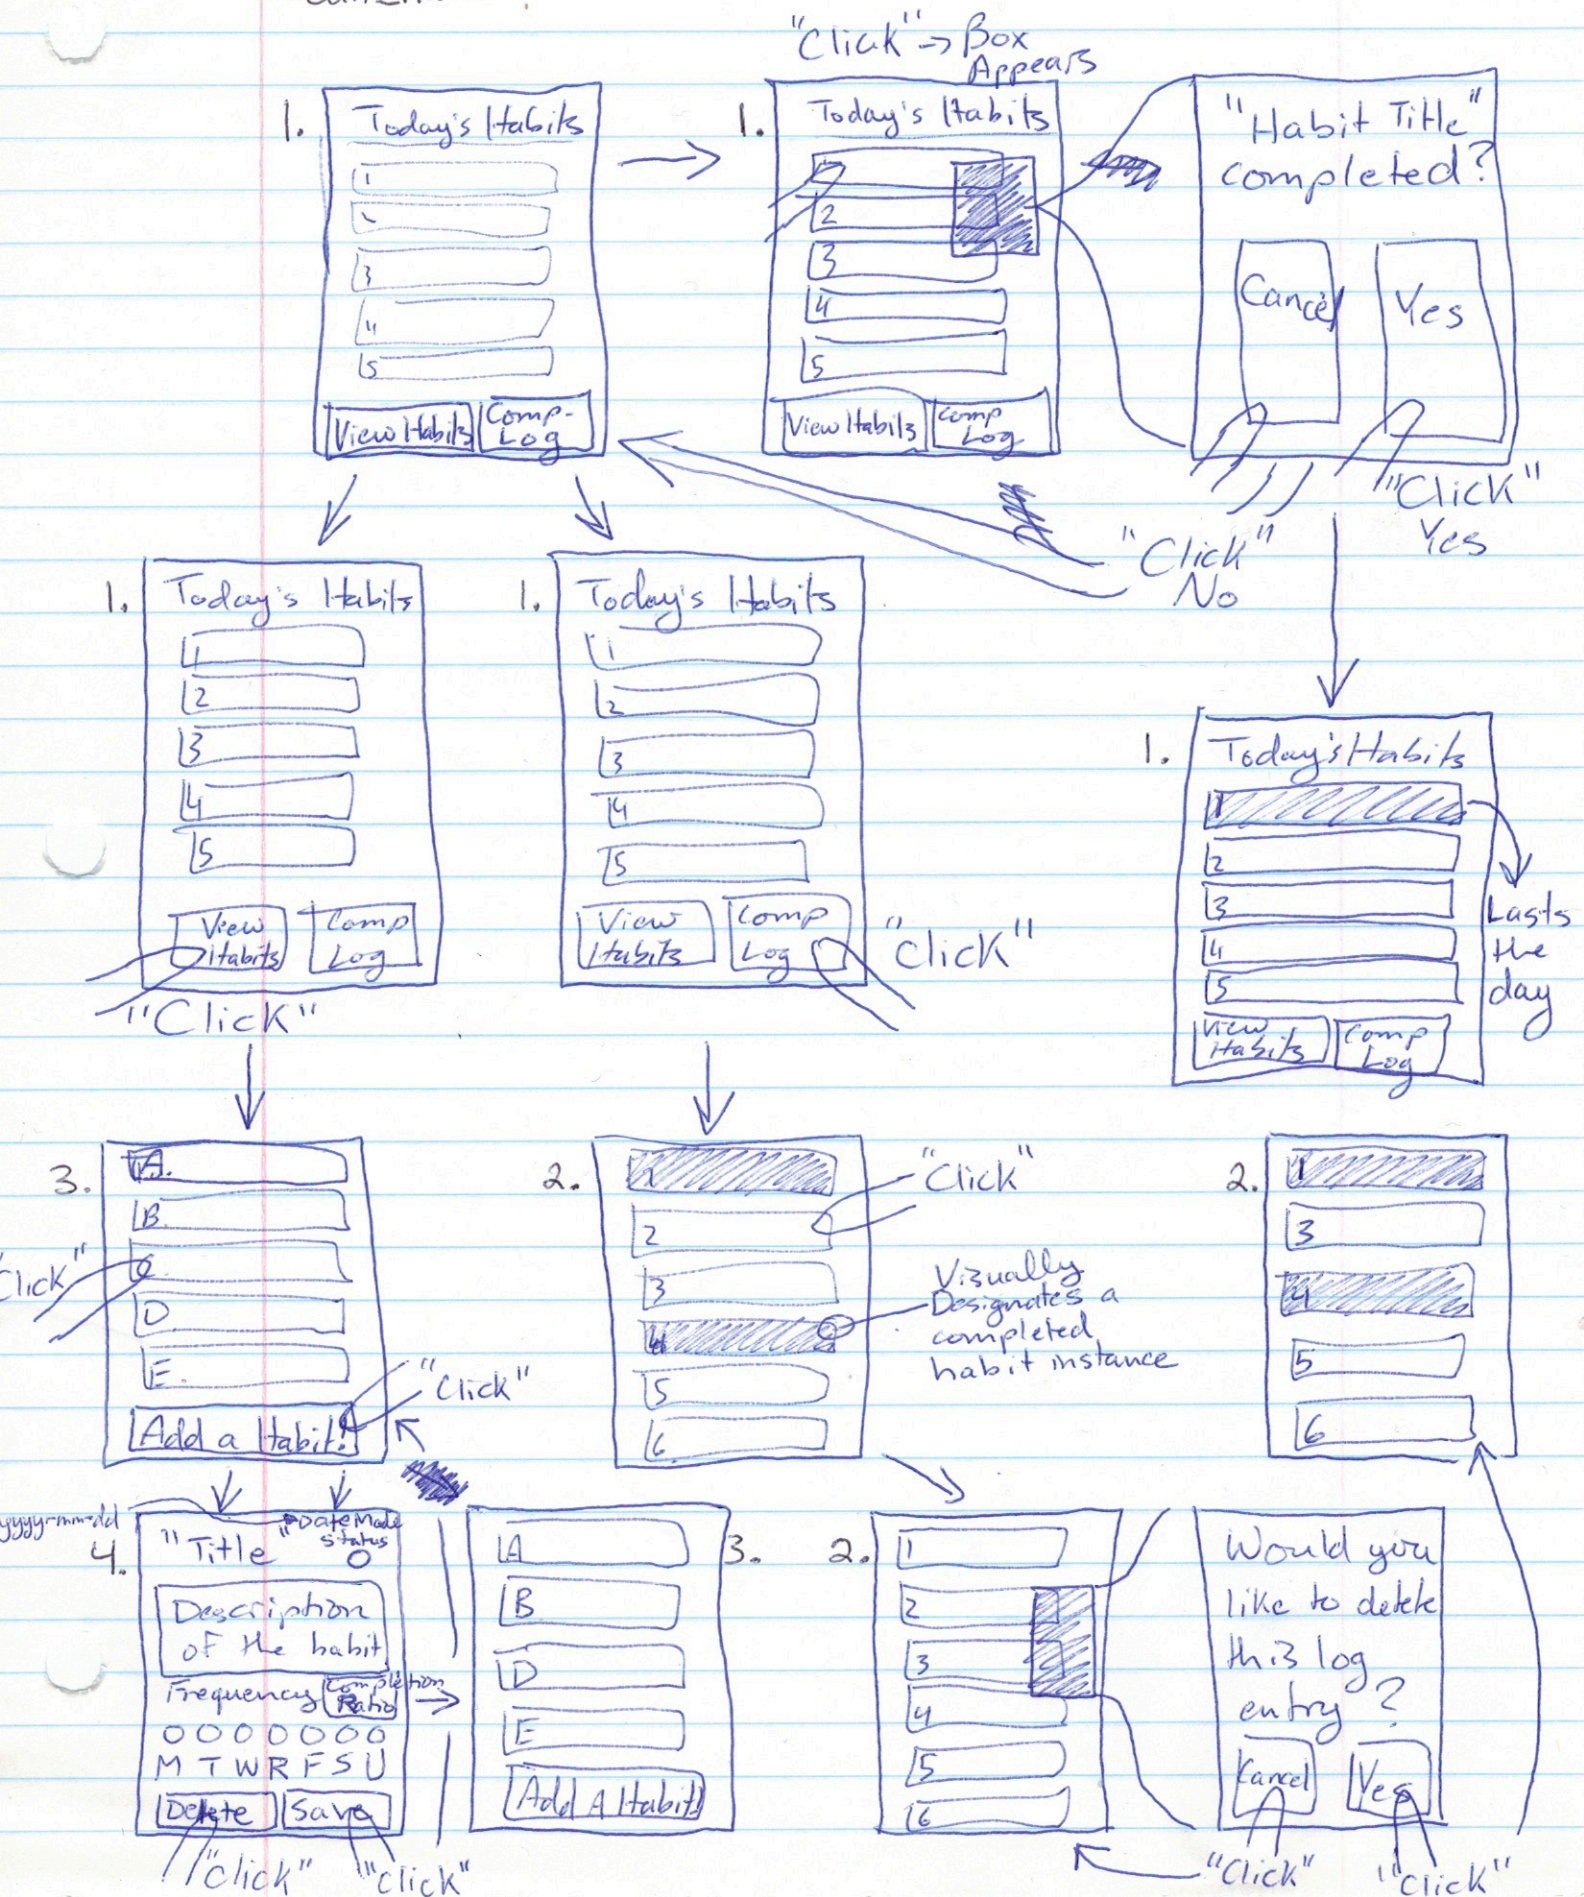 "Click" → Box
Appears
1.
Today's Habits
1
2
3
4
5
View Habits
Comp-
Log
1.
Today's Habits
1
2
3
4
5
View Habits
Comp
Log
"Habit Title"
completed?
Cancel
Yes
"Click"
No
"Click"
Yes
1.
Today's Habits
1
2
3
4
5
View
Habits
Comp
Log
"Click"
1.
Today's Habits
1
2
3
4
5
View
Habits
Comp
Log
"Click"
1.
Today's Habits
1
2
3
4
5
View
Habits
Comp
Log
Lasts
the
day
3.
A.
B.
C
D
E.
Add a Habit!
"Click"
"Click"
2.
1
2
3
4
5
6
"Click"
Visually
Designates a
completed
habit instance
2.
1
3
4
5
6
yyyy-mm-dd
4.
"Title"
Date Made
Status
Description
of the habit
Frequency
Completion
Ratio
M T W R F S U
Delete
Save
"Click"
"Click"
3.
A
B
D
E
Add A Habit!
2.
1
2
3
4
5
6
Would you
like to delete
this log
entry?
Cancel
Yes
"Click"
"Click"